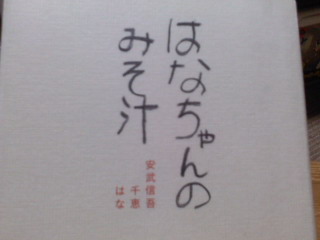 はなちゃんの
みそ汁
安武信吾
千恵
はな